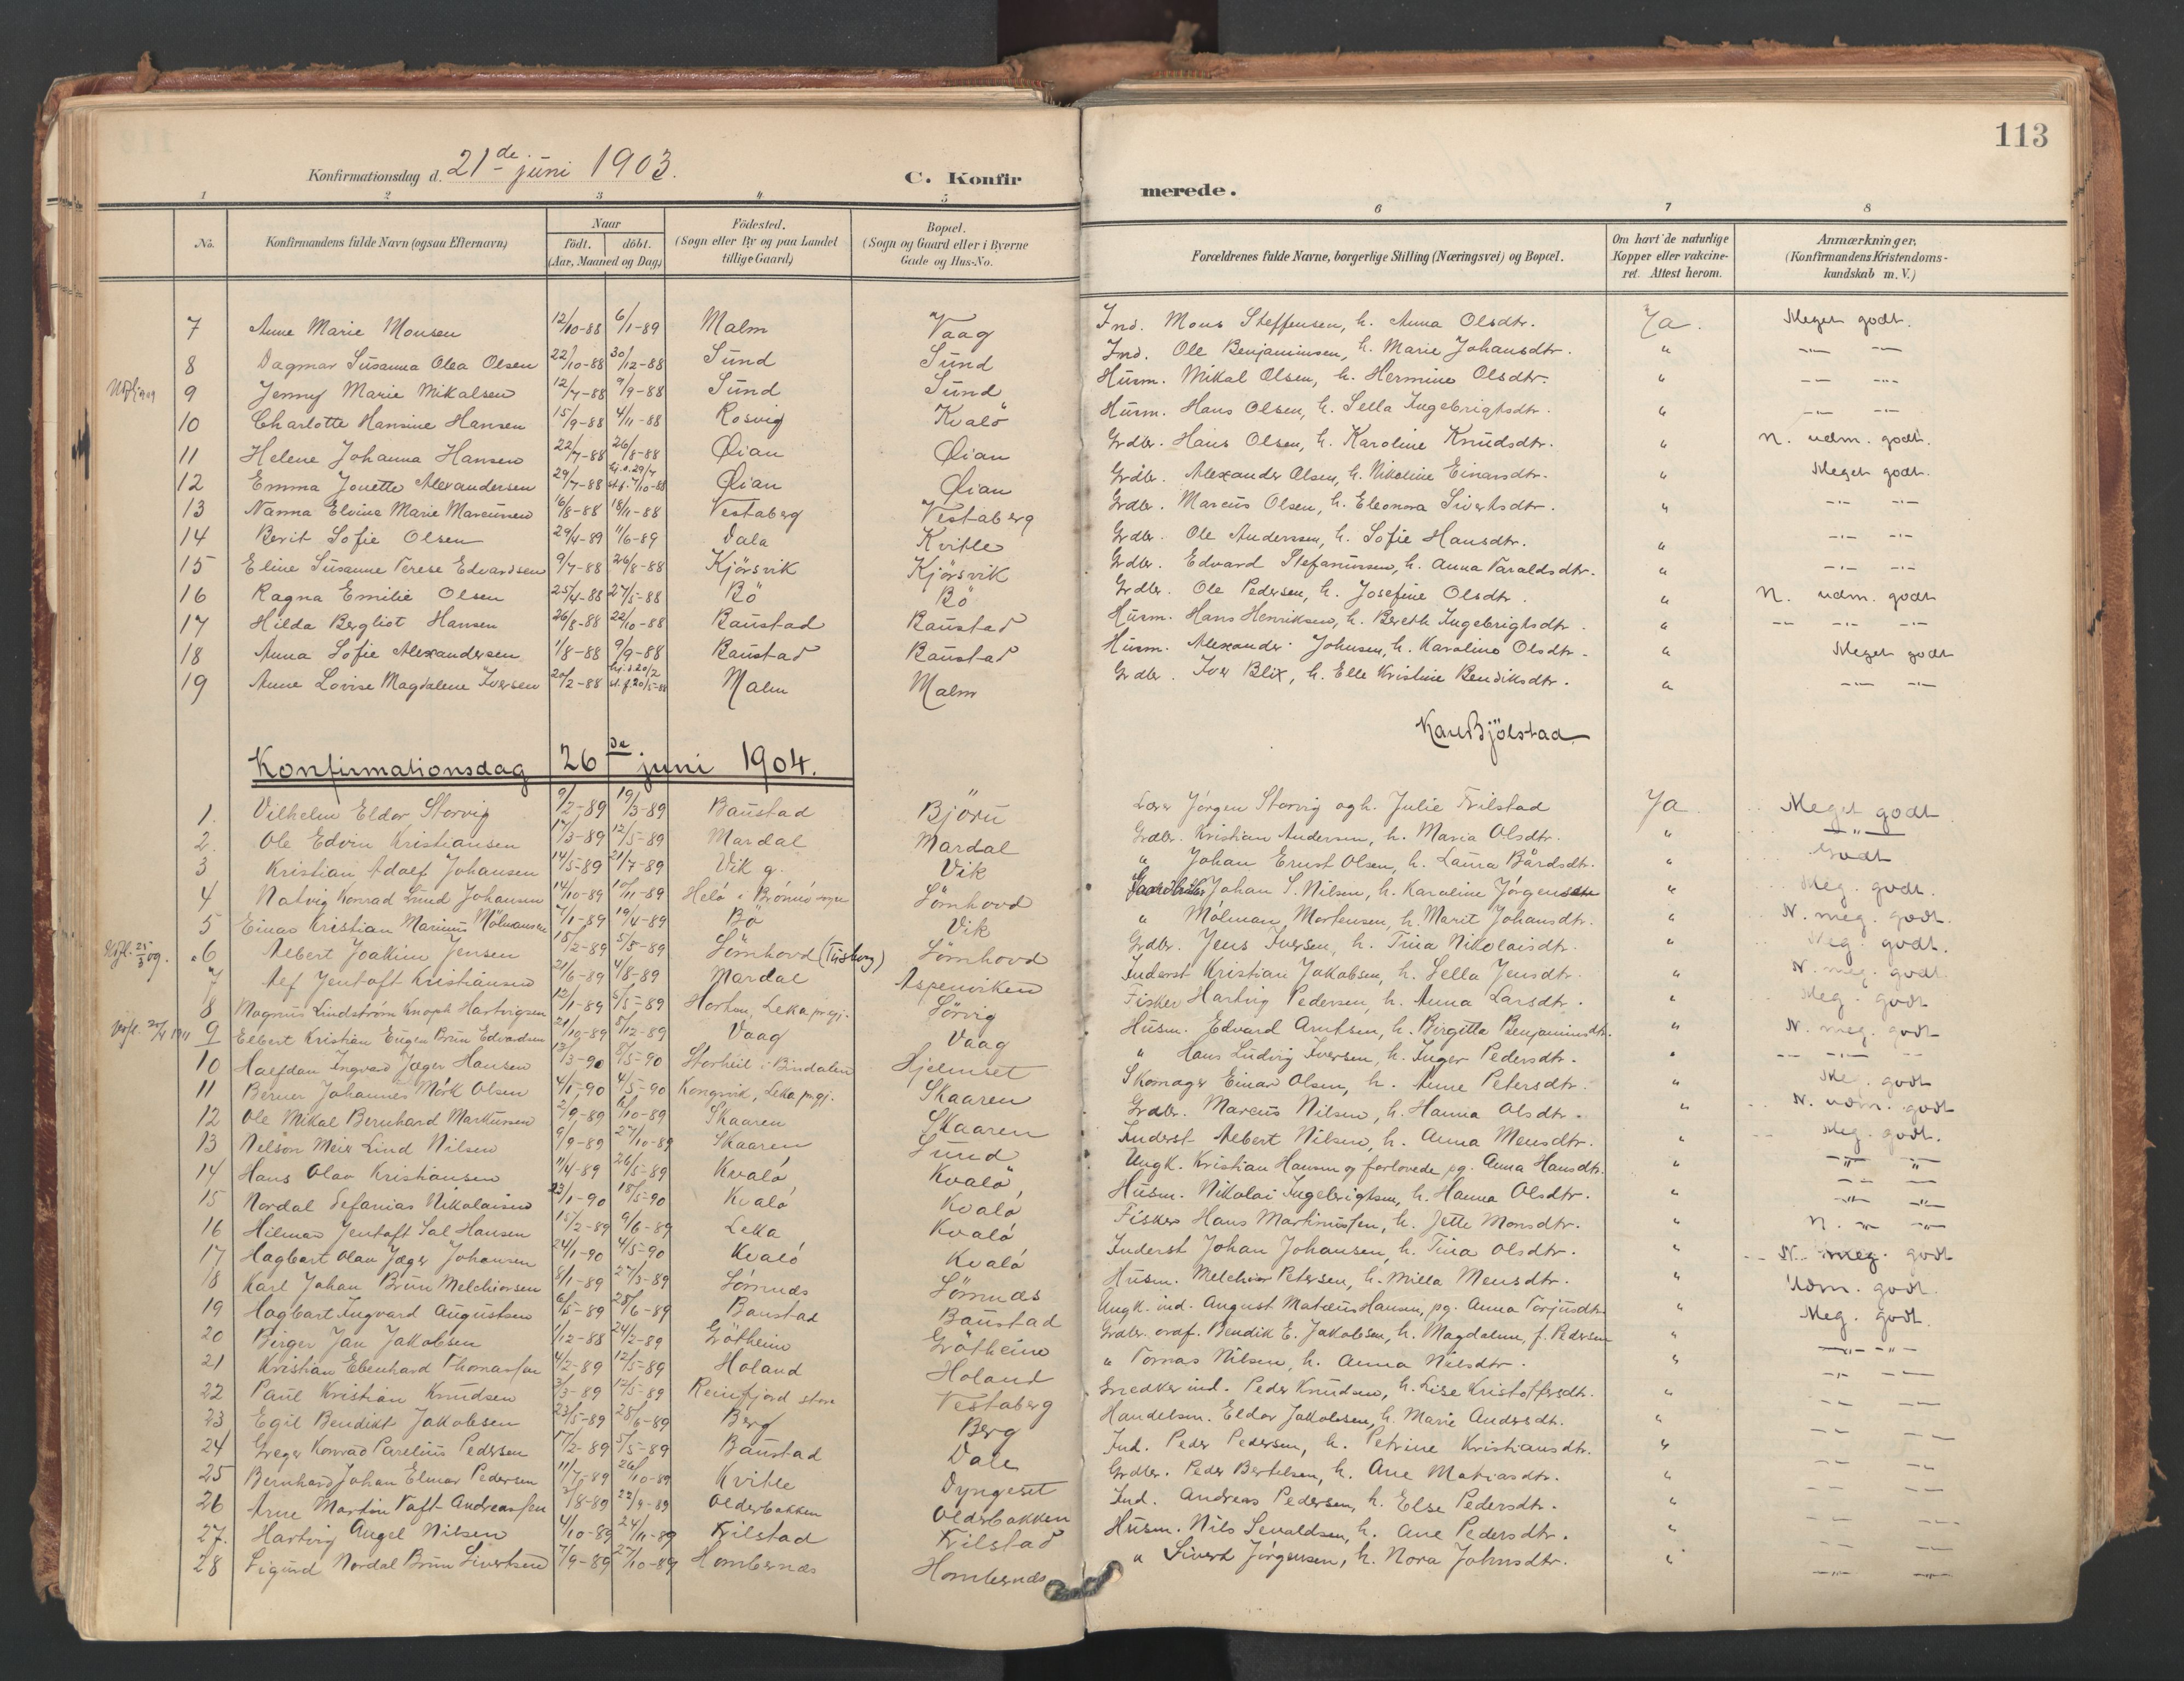 113
Konfirmationsdag d. 21de juni 1903.
C. Konfirmerede.
1 2 3 4 5 6 7 8
No. Konfirmandens fulde Navn (ogsaa Efternavn) Naar födt. döbt. (Aar, Maaned og Dag) Födested. (Sogn eller By og paa Landet tillige Gaard) Bopæl. (Sogn og Gaard eller i Byerne Gade og Hus-No. Forældrenes fulde Navne, borgerlige Stilling (Næringsvei) og Bopæl. Om havt de naturlige Kopper eller vakcineret. Attest herom. Anmærkninger, (Konfirmandens Kristendomskundskab m. V.)
7 Anne Marie Monsen 12/10-88 6/1-89 Malm Vaag Ind. Mons Steffensen, h. Anna Olsdtr. Ja. Meget godt.
8 Dagmar Susanna Olea Olsen 22/10-88 30/12-88 Sund Sund Ind. Ole Benjaminsen, h. Marie Johansdtr. " -"- -"-
9 Jenny Marie Mikalsen 12/7-88 9/9-88 Sund Sund Husm. Mikal Olsen, h. Hermine Olsdtr. " -"- -"-
10 Charlotte Hansine Hansen 15/9-88 4/11-88 Rosvig Kvalö Husm. Hans Olsen, h. Sella Ingebrigtsdtr. " -"- -"-
11 Helene Johanna Hansen 22/7-88 26/8-88 Qian Qian Grdbr. Hans Olsen, h. Karoline Knudsdtr. " N. udm. godt.
12 Emma Jonette Alexandersen 29/7-88 hj.d. 29/7 st.f. 7/10-88 Qian Qian Grdbr. Alexander Olsen, h. Nikoline Einarsdtr. " Meget godt.
13 Nanna Elvine Marie Marcussen 16/8-88 18/11-88 Vestaberg Vestaberg Grdbr. Marcus Olsen, h. Eleonora Sivertsdtr. " -"- -"-
14 Berit Sofie Olsen 29/4-89 11/6-89 Dala Kvitle Grdbr. Ole Anderssen, h. Sofie Hansdtr. " -"- -"-
15 Eline Susanne Terese Edvardsen 9/7-88 26/8-88 Kjörsvik Kjörsvik Grdbr. Edvard Stefanussen, h. Anna Taraldsdtr. " -"- -"-
16 Ragna Emilie Olsen 25/4-88 27/5-88 Bö Bö Grdbr. Ole Pedersen, h. Josefine Olsdtr. " N. udm. godt
17 Hilda Bergliot Hansen 26/8-88 22/10-88 Baustad Baustad Husm. Hans Henriksen, h. Bereth Ingebrigtsdtr. " -"- -"- -"-
18 Anna Sofie Alexandersen 1/8-88 9/9-88 Baustad Baustad Husm. Alexander Johnsen, h. Karoline Olsdtr. " Meget godt
19 Anne Lovise Magdalene Iversen 20/2-88 hj.d. 20/2 st.f. 20/5-88 Malm Malm Grdbr. Iver Blix, h. Elle Kristine Bendiksdtr. " -"- -"-
Karl Bjölstad
Konfirmationsdag 26de juni 1904.
1. Vilhelm Eldor Storvig 9/2-89 19/3-89 Baustad Björu Lærer Jörgen Storvig og h. Julie Trilstad Ja Meget godt
2. Ole Edvin Kristiansen 17/3-89 12/5-89 Mardal Mardal Grdbr. Kristian Andersen, h. Maria Olsdtr. " "
3 Kristian Adolf Johansen 14/5-89 21/7-89 Vik g. Vik " Johan Ernst Olsen, h. Laura Bårdsdtr. " Godt
4 Natvig Konrad Lund Johansen 14/10-89 10/11-89 Helö i Brönnö Sömhovd Johan S. Nilsen, h. Karoline Jörgensdtr " Meg. godt.
5 Einar Kristian Marinus Mölmansen 7/1-89 19/4-89 Bö Vik " Mölman Mortensen, h. Marit Johansdtr. " N. meg. godt.
Utfl. 25/3 09. 6 Albert Joakim Jensen 18/2-89 5/5-89 Sömhovd Sömhovd Grdbr. Jens Iversen, h. Tina Nikolaisdtr. " Meg. godt.
7 Alf Jentoft Kristiansen 21/6-89 4/8-89 Mardal Aspenviken Inderst Kristian Jakobsen, h. Sella Jensdtr. " N. meg. godt
8 Magnus Lindström Knoph Hartvigsen 12/1-89 5/5-89 Horten, Leka prgj. Sörvig Fisker Hartvig Pedersen, h. Anna Larsdtr. " Meg. godt
9 Elbert Kristian Eugen Brun Edvardsen 21/10-89 8/12-89 Vaag Vaag Husm. Edvard Arntsen, h. Birgitta Benjaminsdtr. " N. meg. godt
10 Halfdan Ingvard Jæger Hansen 13/3-90 8/5-90 Storheil i Bindalen Hjelmset " Hans Ludvig Iversen, h. Inger Pedersdtr. " -"- -"- -"-
11 Berner Johannes Mörk Olsen 4/1-90 4/5-90 Kongsvik, Leka prgj. Skaaren Skomager Einar Olsen, h. Anne Petersdtr. " Meg. godt
12 Ole Mikal Bernhard Markussen 2/9-89 12/10-89 Skaaren Skaaren Grdbr. Marcus Nilsen, h. Hanna Olsdtr. " N. udm. godt
13 Nelson Meier Lind Nilsen 9/9-89 27/10-89 Skaaren Sund Inderst Albert Nilsen, h. Anna Monsdtr. " Meg. godt.
14 Hans Olav Kristiansen 11/4-89 26/5-89 Kvalö Kvalö Ungk. Kristian Hansen og forlovede pg. Anna Hansdtr. " -"- -"-
15 Nordal Sefanias Nikolaisen 23/1-90 18/5-90 Kvalö Kvalö Husm. Nikolai Ingebrigtsen, h. Hanna Olsdtr. " -"- -"-
16 Hilmar Jentoft Sal Hansen 15/2-89 9/6-89 Leka Kvalö Fisker Hans Martinussen, h. Jette Monsdtr. " N. -"- -"-
17 Hagbart Olav Jæger Johansen 24/1-90 4/5-90 Kvalö Kvalö Inderst Johan Johansen, h. Tina Olsdtr. " N. meg. godt
18 Karl Johan Brun Melchiorsen 8/1-89 27/3-89 Sörnæs Sörnæs Husm. Melchior Petersen, h. Milla Monsdtr. " Udm. godt
19 Hagbart Ingvard Augustsen 6/5-89 28/6-89 Baustad Baustad Ungk. ind. August Matæus Hansen, pg. Anna Torjusdtr. " Meg. godt.
20 Birger Jan Jakobsen 1/12-88 24/2-89 Grötheim Grötheim Grdbr. ordf. Bendik E. Jakobsen, h. Magdalena, f. Pedersen " -"- -"-
21 Kristian Ebenhard Thomassen 4/2-89 12/5-89 Holand Holand " Tomas Nilsen, h. Anna Nilsdtr. " -"- -"-
22 Paul Kristian Knudsen 3/3-89 12/5-89 Reinfjord store Vestaberg Snedker ind. Peder Knudsen, h. Lise Kristoffersdtr. " -"- -"-
23 Egil Bendikt Jakobsen 23/5-89 28/6-89 Berg Berg Handelsm. Eldor Jakobsen, h. Marie Andersdtr. " -"- -"-
24 Greger Konrad Parelius Pedersen 17/2-89 5/5-89 Baustad Dale Ind. Peder Pedersen, h. Petrine Kristiansdtr. " -"- -"-
25 Bernhard Johan Elmar Pedersen 11/7-89 26/10-89 Kvitle Dyngeset Grdbr. Peder Bertelsen, h. Ane Matiasdtr. " -"- -"-
26 Arne Martin Toft Andreassen 3/8-89 22/9-89 Olderbakken Olderbakken Ind. Andreas Pedersen, h. Else Pedersdtr. " -"- -"-
27. Hartvig Angel Nilsen 4/10-89 24/11-89 Trilstad Trilstad Husm. Nils Sevaldsen, h. Ane Pedersdtr. " -"- -"-
28 Sigurd Nordal Brun Sivertsen 7/9-89 27/10-89 Hombernæs Hombernæs " Sivert Jörgensen, h. Nora Johnsdtr. " -"- -"-